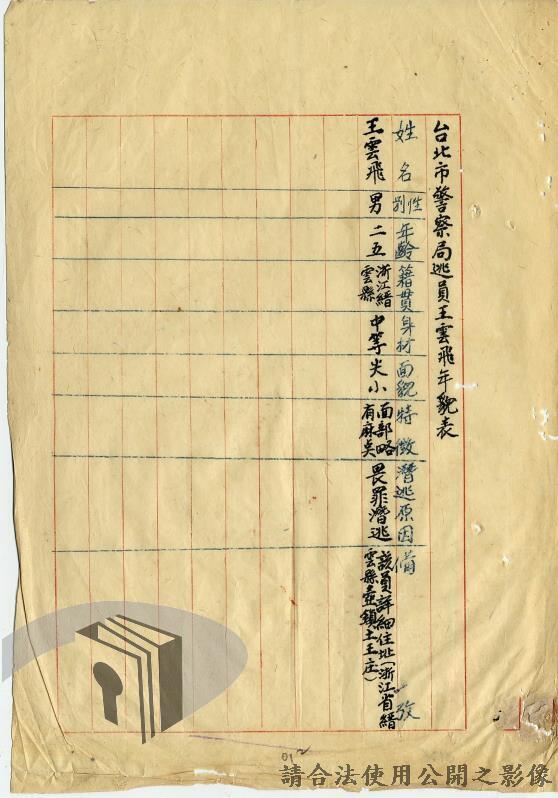 台北市警察局逃員王雲飛年貌表
姓名 性別 年齡 籍貫 身材 面貌 特徵 潛逃原因 備攷
王雲飛 男 二五 浙江縉雲縣 中等 尖小 面部略有麻點 畏罪潛逃 該員詳細住址(浙江省縉雲縣壺鎮土王庄)
請合法使用公開之影像